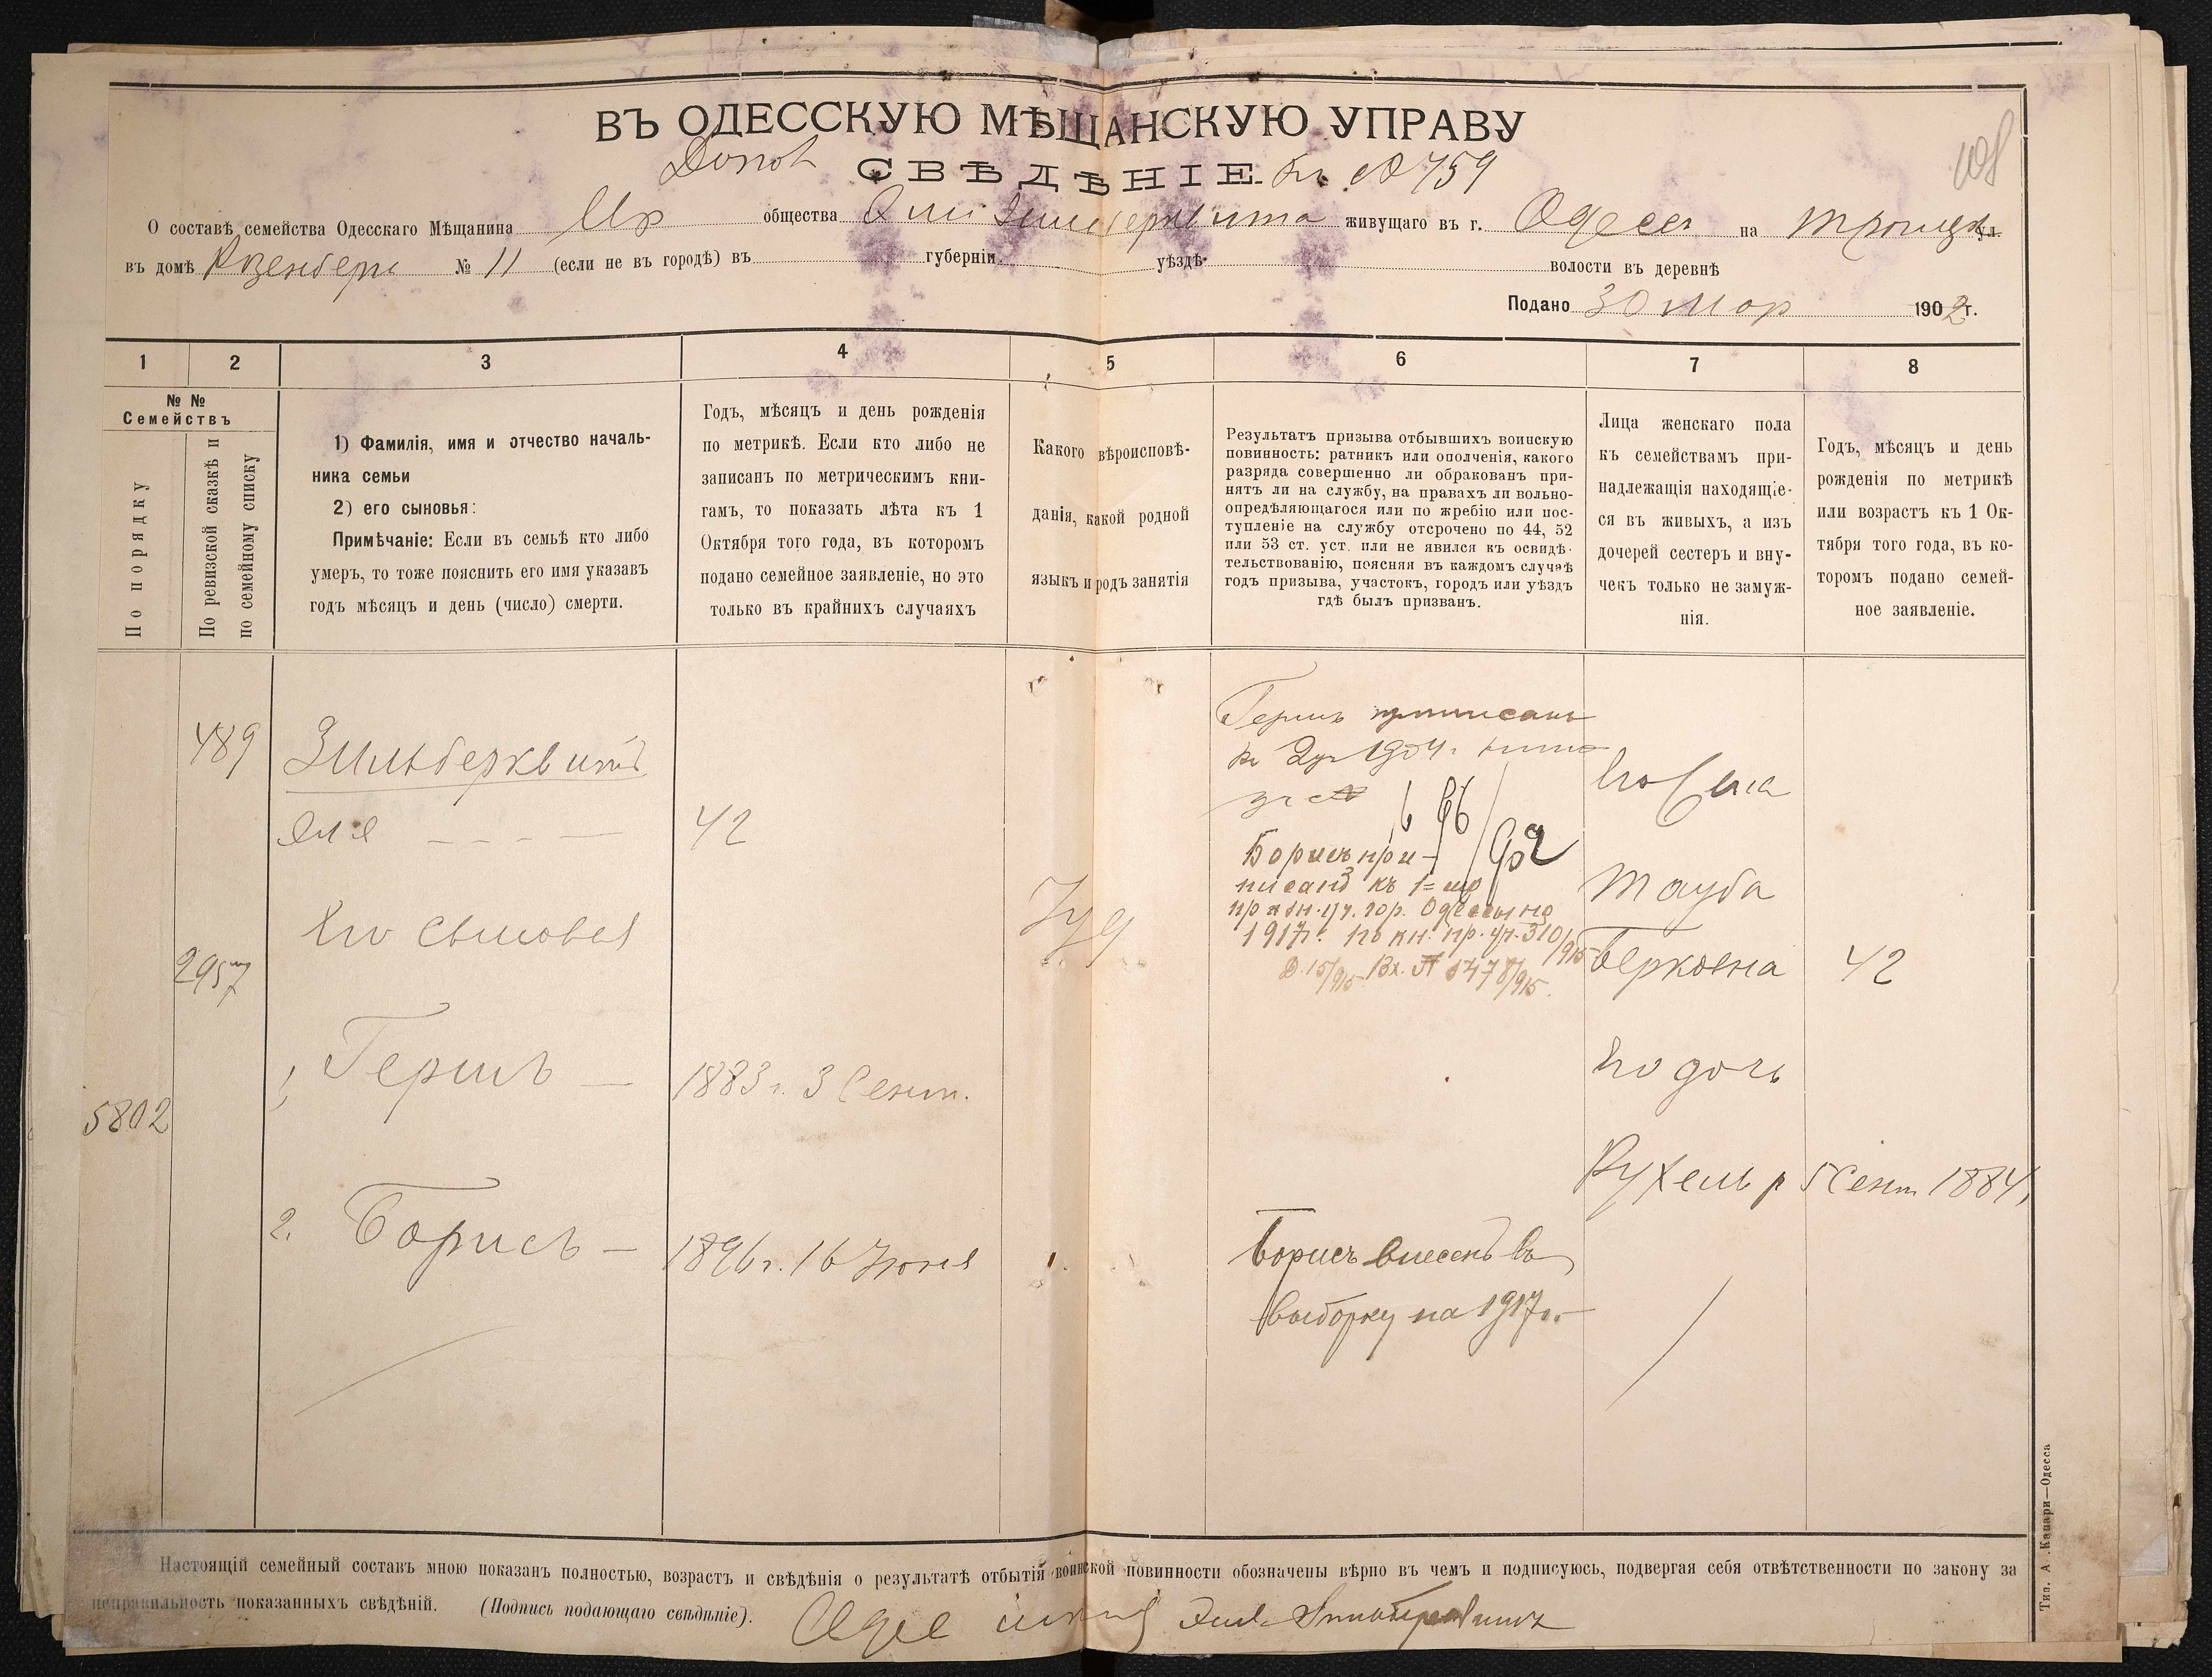 ВЪ ОДЕССКУЮ МѢЩАНСКУЮ УПРАВУ
Допол
СВѢДѢНІЕ. къ № 759
О составѣ семейства Одесскаго Мѣщанина общества живущаго въ г. Одессѣ на Троицк ул.
въ домѣ Розенберга № 11 (если не въ городѣ) въ губерніи уѣздѣ волости въ деревнѣ
Подано 30 Мар 1902 г.
1 2 3 4 5 6 7 8
№ №
Семействъ
По порядку
По ревизской сказкѣ и
по семейному списку
1) Фамилія, имя и отчество началь-
ника семьи
2) его сыновья:
Примѣчаніе: Если въ семьѣ кто либо
умеръ, то тоже пояснить его имя указавъ
годъ мѣсяцъ и день (число) смерти.
Годъ, мѣсяцъ и день рожденія
по метрикѣ. Если кто либо не
записанъ по метрическимъ кни-
гамъ, то показать лѣта къ 1
Октября того года, въ которомъ
подано семейное заявленіе, но это
только въ крайнихъ случаяхъ
Какого вѣроисповѣ-
данія, какой родной
языкъ и родъ занятія
Результатъ призыва отбывшихъ воинскую
повинность: ратникъ или ополченія, какого
разряда совершенно ли обракованъ при-
нятъ ли на службу, на правахъ ли вольно-
опредѣляющагося или по жребію или пос-
тупленіе на службу отсрочено по 44, 52
или 53 ст. уст. или не явился къ освидѣ-
тельствованію, поясняя въ каждомъ случаѣ
годъ призыва, участокъ, городъ или уѣздъ
гдѣ былъ призванъ.
Лица женскаго пола
къ семействамъ при-
надлежащія находящіе-
ся въ живыхъ, а изъ
дочерей сестеръ и вну-
чекъ только не замуж-
нія.
Годъ, мѣсяцъ и день
рожденія по метрикѣ
или возрастъ къ 1 Ок-
тября того года, въ ко-
торомъ подано семей-
ное заявленіе.
489
2957
5802
Зильберквитъ
Эля — — — 42
Его сыновья
1, Гершъ — 1883 г. 3 Сент.
2. Борисъ — 1896 г. 16 Іюня
Іуд
Гершъ приписанъ
къ 2 уч 1904 г.
за №
Борисъ при-
писанъ къ 1=му
призн. уч. гор. Одессы на
1917 г. по кн. пр. уч. 310/915
В. 15/915 Вх. № 8478/915.
Борисъ внесенъ въ
выборку на 1917 г.
Его жена
Тауба
Берковна 42
Его дочь
Рухель р 5 Сент 1884,
Настоящій семейный составъ мною показанъ полностью, возрастъ и свѣдѣнія о результатѣ отбытія воинской повинности обозначены вѣрно въ чемъ и подписуюсь, подвергая себя отвѣтственности по закону за
неправильность показанныхъ свѣдѣній. (Подпись подающаго свѣдѣніе).
Тип. А. Капари—Одесса